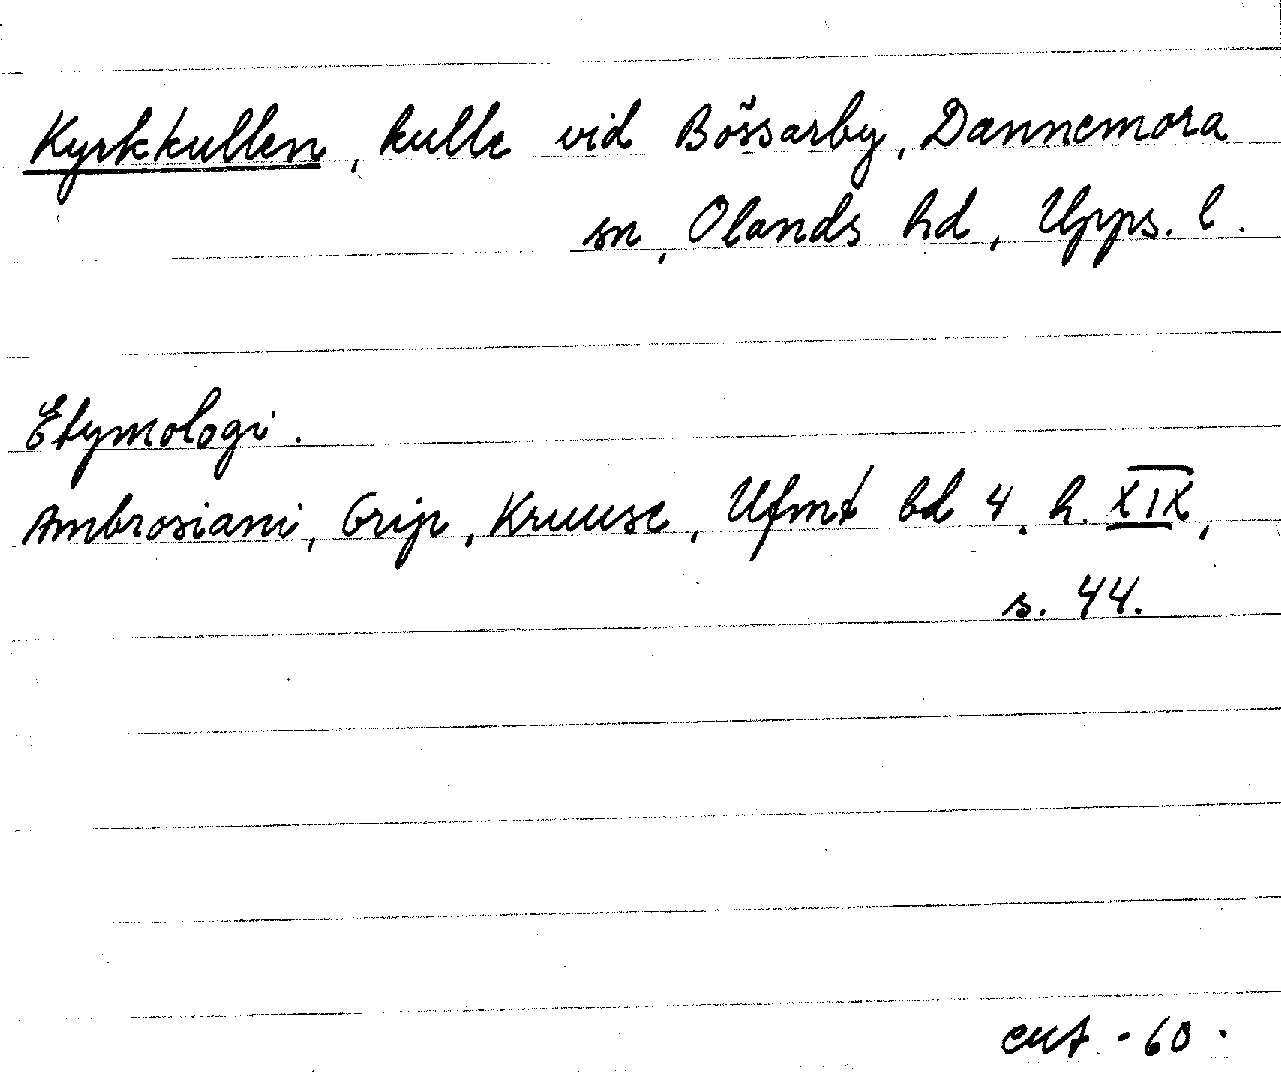 Kyrkkullen, kulle vid Bössarby, Dannemora
sn, Olands hd, Upps. l.
Etymologi.
Ambrosiani, Grip, Kruuse, Ufmt bd 4, h. XIX,
s. 44.
-60.